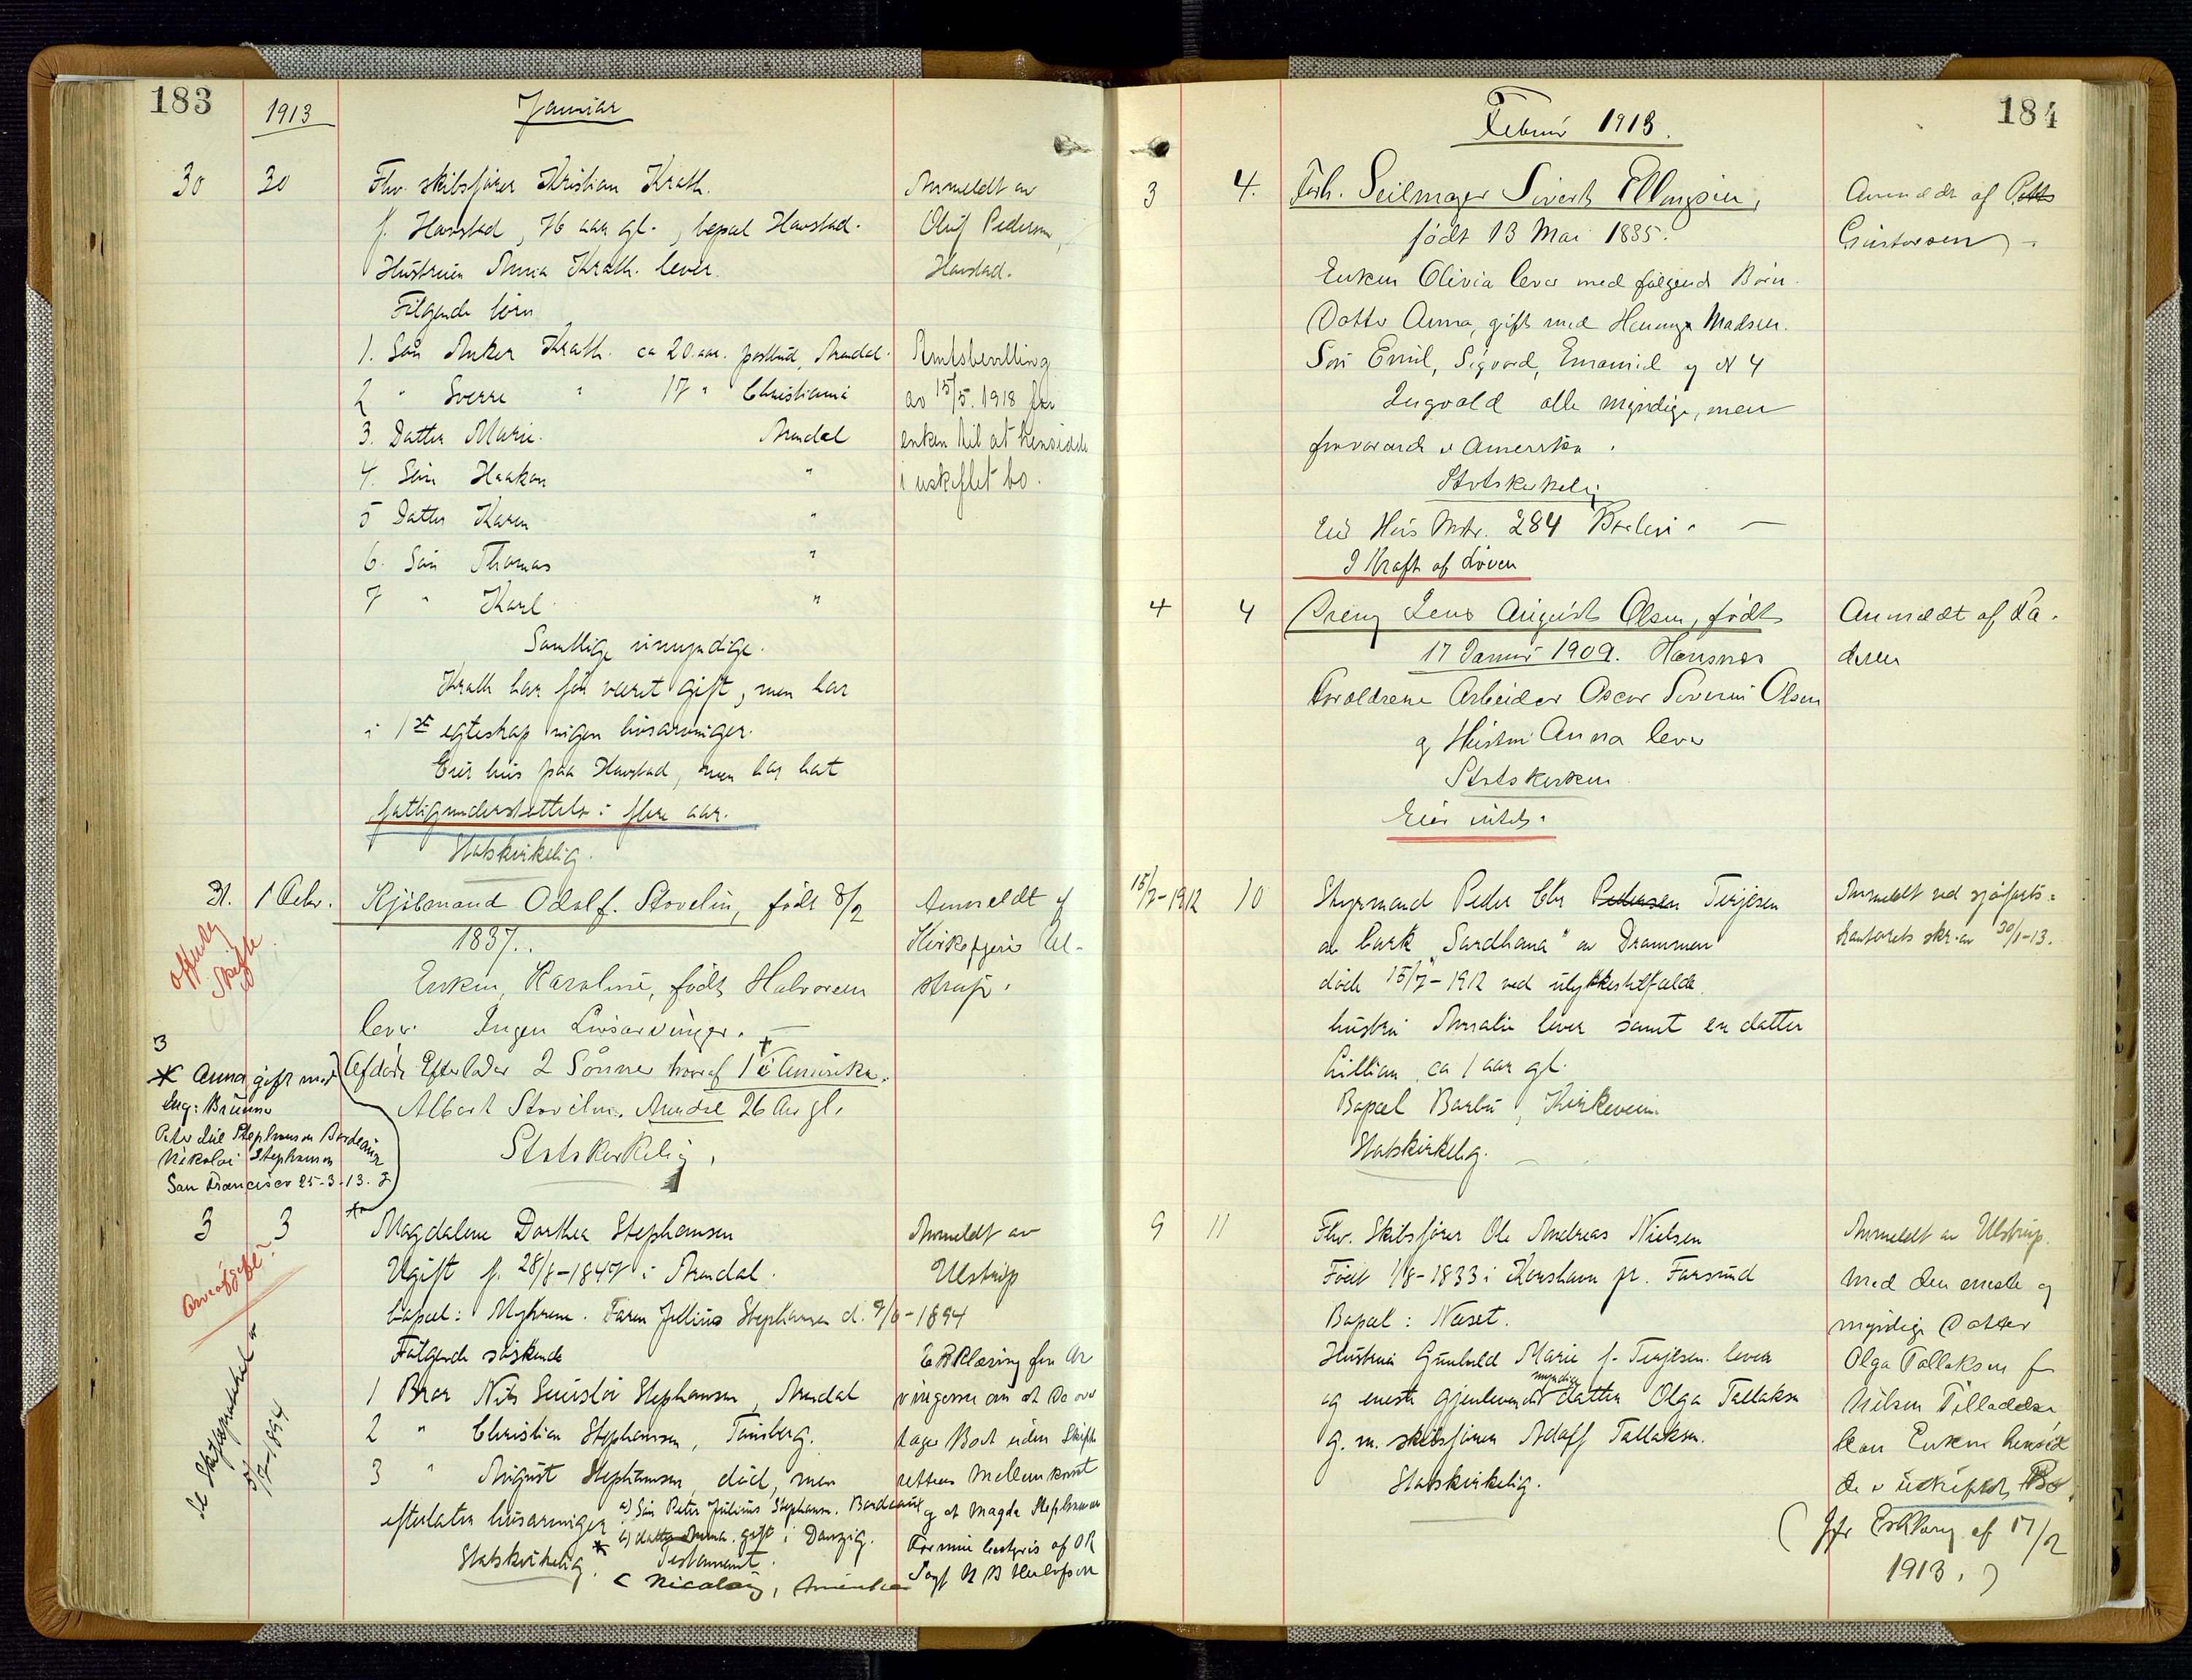 183
1913
Januar
30 30 Fhv. skibsfører Kristian Krath.
f. Havstad, 76 aar gl., bopæl Havstad.
Hustruen Anna Krath lever.
Følgende børn
1. Søn Anker Krath. ca 20 aar. postbud, Arendal.
2 " Sverre " 17 " Christiania
3. Datter Marie. Arendal
4. Søn Haakon "
5 Datter Karen "
6. Søn Thomas "
7 " Karl "
Samtlige umyndige.
Krath har før været gift, men har
i 1st egteskap ingen livsarvinger.
Eier hus paa Havstad, men har hat
fattigunderstøttelse i flere aar.
Statskirkelig.
Anmeldt av
Oluf Pedersen,
Havstad.
Amtsbevilling
av 15/5. 1918 for
enken til at hensidde
i uskiftet bo.
31. 1 Febr. Odolf. Stovelin, født 8/2
1837.
Enken, Karoline, født Halvorsen
lever. Ingen Livsarvinger. —
Afdøde Efterlader 2 Sønner hvoraf 1 i Amerika.
Albert Stovelin. Arendal 26 Aar gl.
Statskirkelig.
Anmeldt af
Ul-
strup.
offentlig
Skifte
3
* Anna gift med
Eng: Brünno
Peter Jul Stephansen Bordeaux
Nikolai Stephansen
San Francisco 25-3-13.
3 3 Magdalene Dorthea Stephansen
Ugift f. 28/8-1847 i Arendal.
bopæl: Myhrene. Faren Jullius Stephansen d. 9/6-1894
Følgende søskende
1 Bror Nils Stephansen, Arendal
2 " Christian Stephansen, Tønsberg.
3 " August Stephansen, død, men
efterlater livsarvinger a) Søn Peter Julius Stephansen. Bordeaux
b) datter Anna. gift i Danzig.
Statskirkelig. * Testament.
c Nicolay, Amerika
Anmeldt av
Ulstrup
Erklæring fra Ar
vingerne om at De over
tager Boet uden Skifte
rettens Mellemkomst
og at Magda Stephansen
5/7-1894
184
Februar 1913.
3 4. Forh. Seilmager Sivert Ellingsen,
født 13 Mai 1835.
Enken Olivia lever med følgende Børn.
Datter Anna, gift med Madsen.
Søn Emil, Sigvard, Emanuel og N 4
Ingvald alle myndige, men
fraværende i Amerika.
Statskirkelig
Eier Hus Mtr. 284 —
I Kraft af Loven
Anmeldt af
Gustavsen —
4 4 Dreng Jens August Olsen, født
17 Januar 1909.
Forældrene Arbeider Oscar Severin Olsen
og Hustru Anna lever
Statskirken
Eier intet.
Anmeldt af Fa-
deren
15/7-1912 10 Styrmand Peder Chr Pedersen Terjesen
av bark "Sardhana" av Drammen
døde 15/7-1912 ved ulykkestilfælde.
hustru Amalie lever samt en datter
Lillian, ca 1 aar gl.
Bopæl Barbu, Kirkeveien.
Statskirkelig. —
Anmeldt ved sjøfarts-
kontorets skr. av 30/1-13.
9 11 Fhv. Skibsfører Ole Andreas Nielsen
Født 1/8-1833 i Korshavn pr. Farsund
Bopæl: Næset.
Hustruen Gunhild Marie f. Terjesen lever
og eneste gjenlevende myndige datter Olga Tallaksen
g. m. skibsfører Adolf Tallaksen.
Statskirkelig.
Anmeldt av Ulstrup.
Med den eneste og
myndige Datter
Olga Tallaksen f
Nilsen Tilladelse
kan Enken hensid
de i uskiftet Bo.
( Jfr Erklæring af 17/2
1913. )